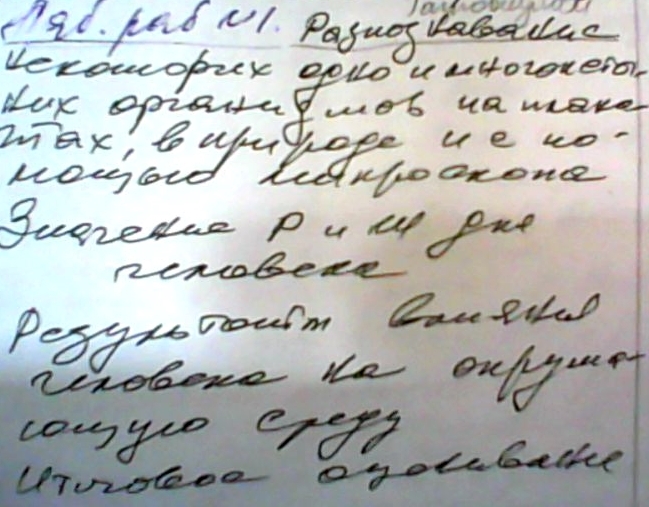 Лаб. раб №1. Распознавание
некоторих одно и многоклеточ-
них организмов на плака-
тах, в природе и с по-
мощью микроскопа
Значение Р и Ж для
человека
Результат влияния
человека на окружа-
ющую среду
Итоговое оценивание